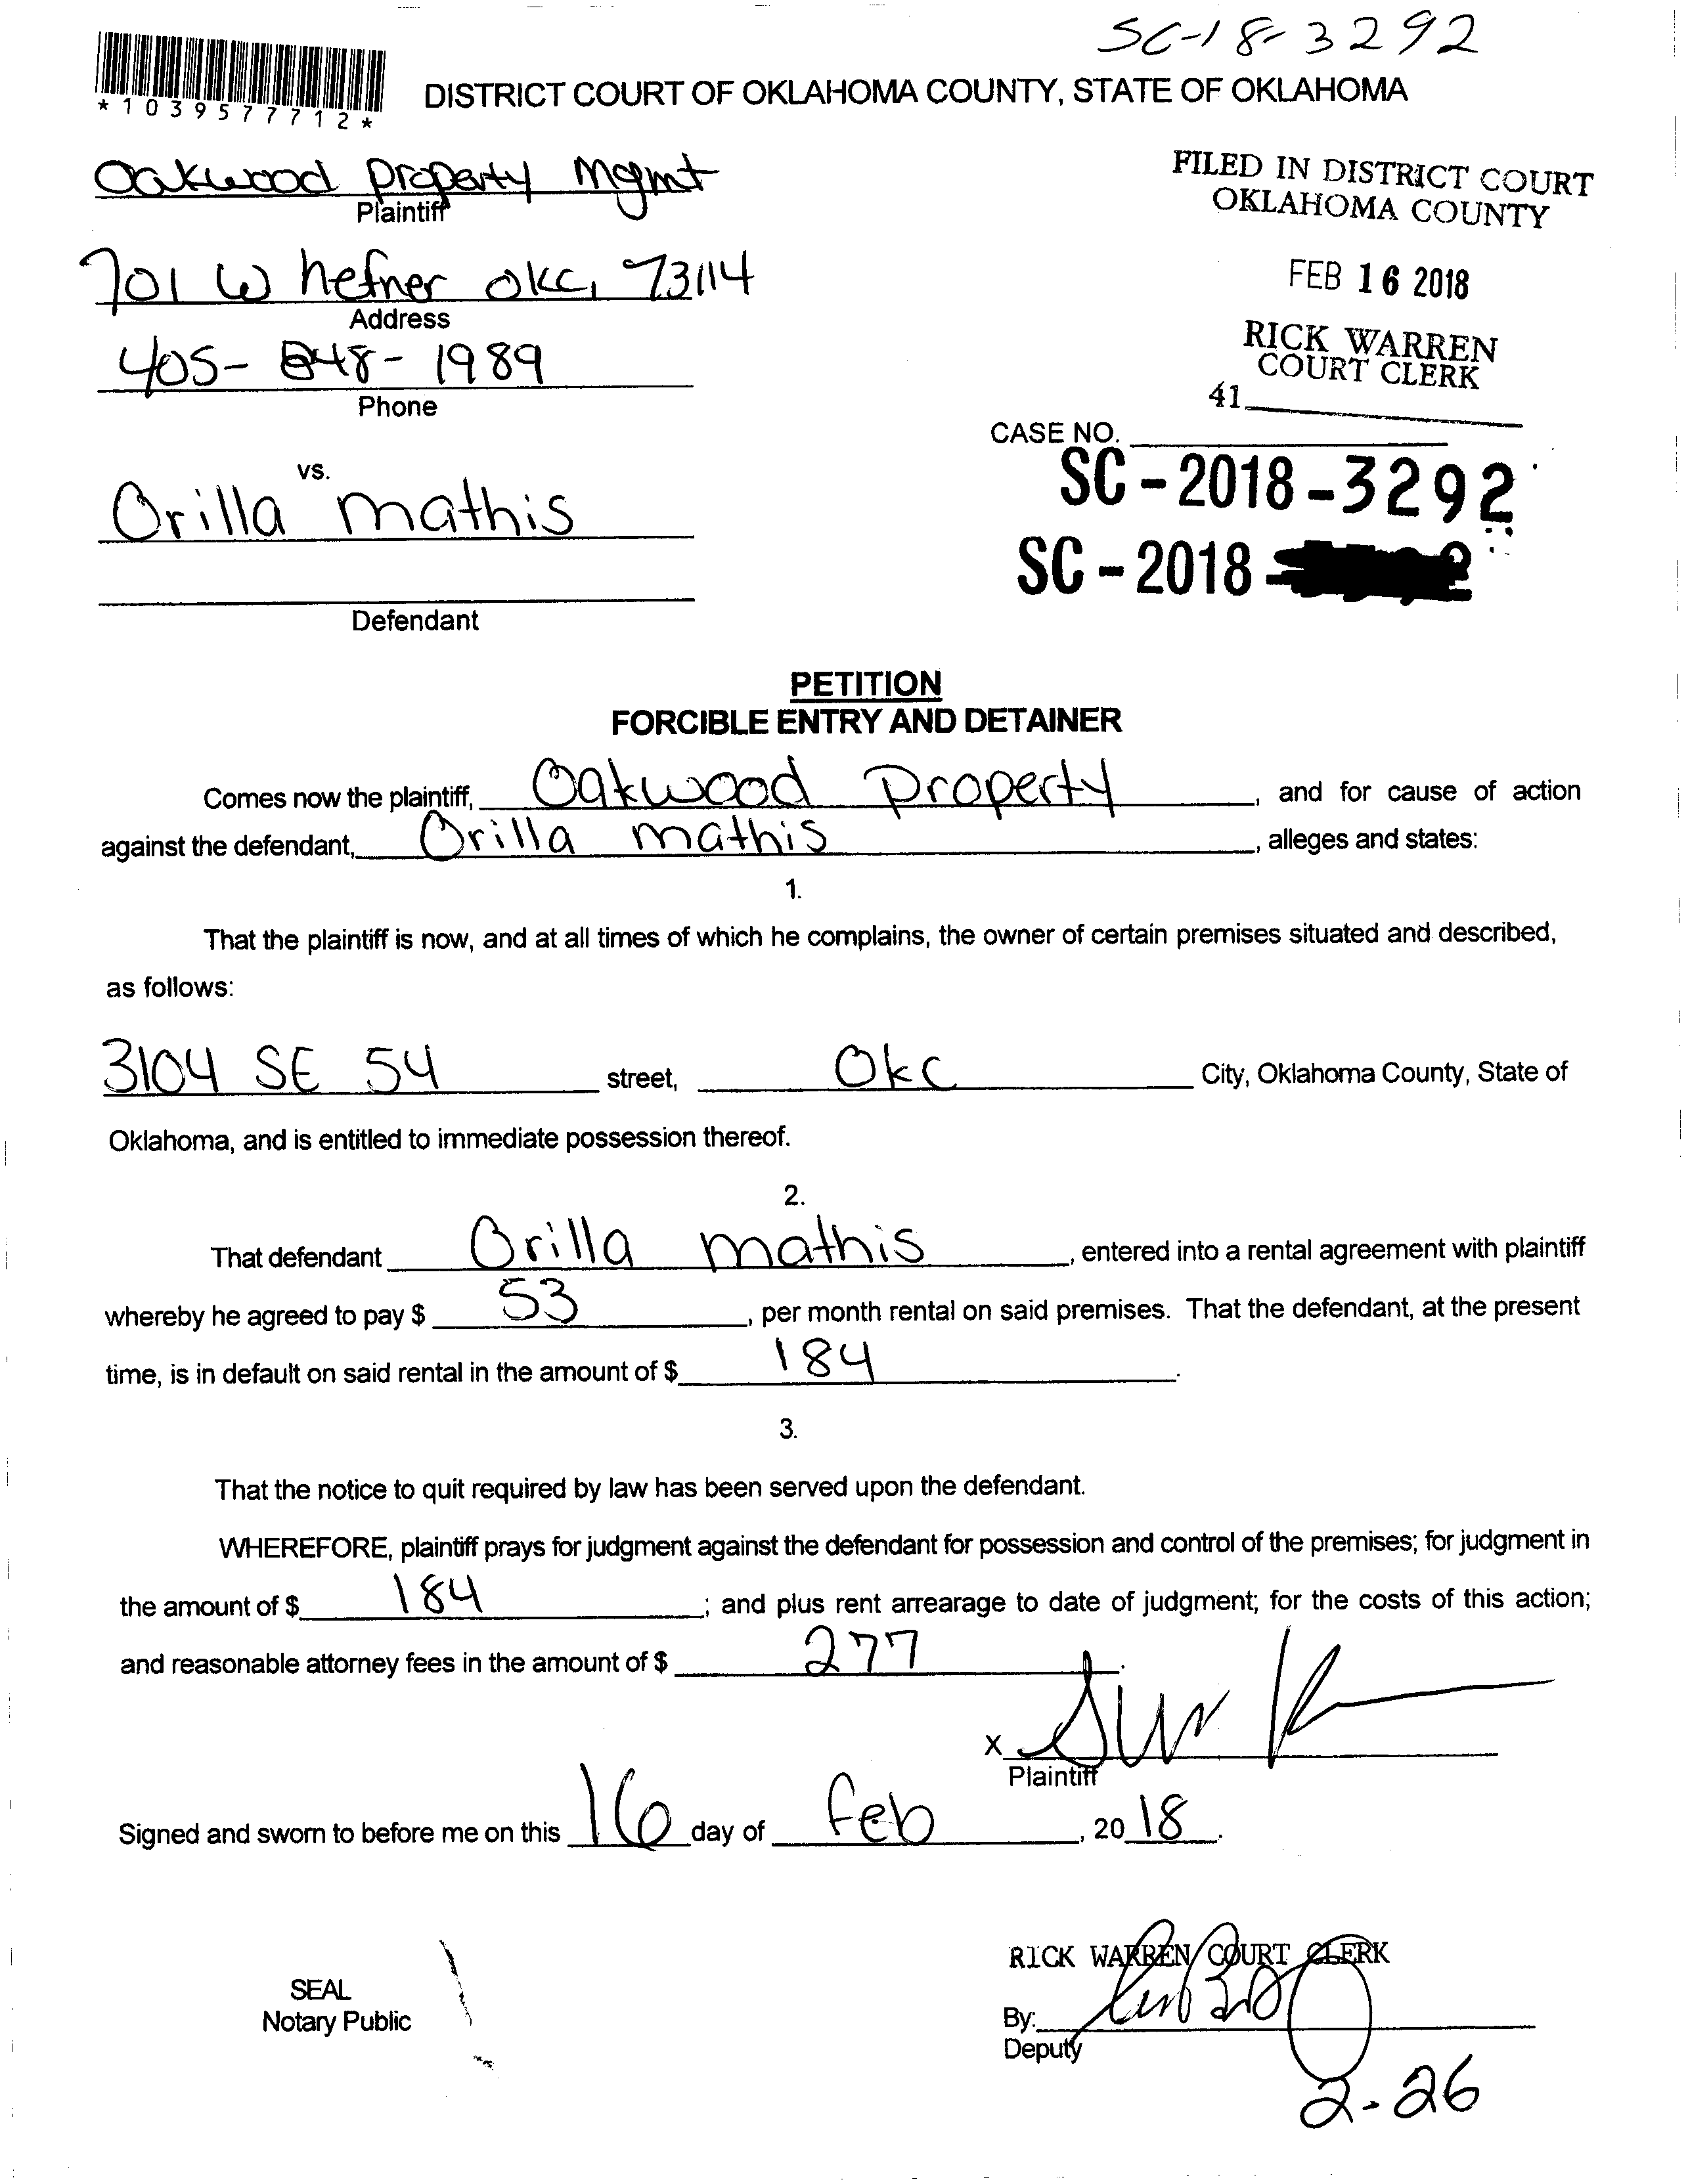 SC-18-3292
*1039577712*
DISTRICT COURT OF OKLAHOMA COUNTY, STATE OF OKLAHOMA
Oakwood Property Mgmt
Plaintiff
FILED IN DISTRICT COURT
OKLAHOMA COUNTY
701 W hefner okc, 73114
Address
FEB 16 2018
405-848-1989
Phone
RICK WARREN
COURT CLERK
41
CASE NO.
vs.
SC-2018-3292
Orilla mathis
SC-2018
Defendant
PETITION
FORCIBLE ENTRY AND DETAINER
Comes now the plaintiff, Oakwood Property, and for cause of action
against the defendant, Orilla mathis, alleges and states:
1.
That the plaintiff is now, and at all times of which he complains, the owner of certain premises situated and described,
as follows:
3104 SE 54 street, Okc City, Oklahoma County, State of
Oklahoma, and is entitled to immediate possession thereof.
2.
That defendant Orilla mathis, entered into a rental agreement with plaintiff
whereby he agreed to pay $ 53, per month rental on said premises. That the defendant, at the present
time, is in default on said rental in the amount of $ 184.
3.
That the notice to quit required by law has been served upon the defendant.
WHEREFORE, plaintiff prays for judgment against the defendant for possession and control of the premises; for judgment in
the amount of $ 184; and plus rent arrearage to date of judgment; for the costs of this action;
and reasonable attorney fees in the amount of $ 277.
X
Plaintiff
Signed and sworn to before me on this 16 day of feb, 2018.
RICK WARREN COURT CLERK
SEAL
Notary Public
By:
Deputy
2-26